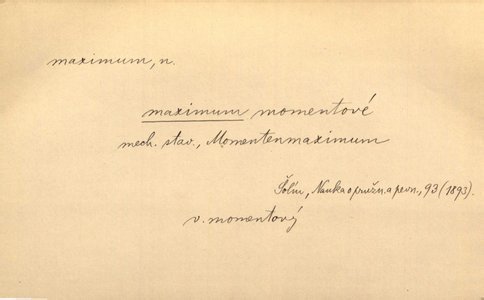 maximum, n.
maximum momentové
mech. stav., Momentenmaximum
Šolín, Nauka o pružn. a pevn., 93 (1893).
v. momentový